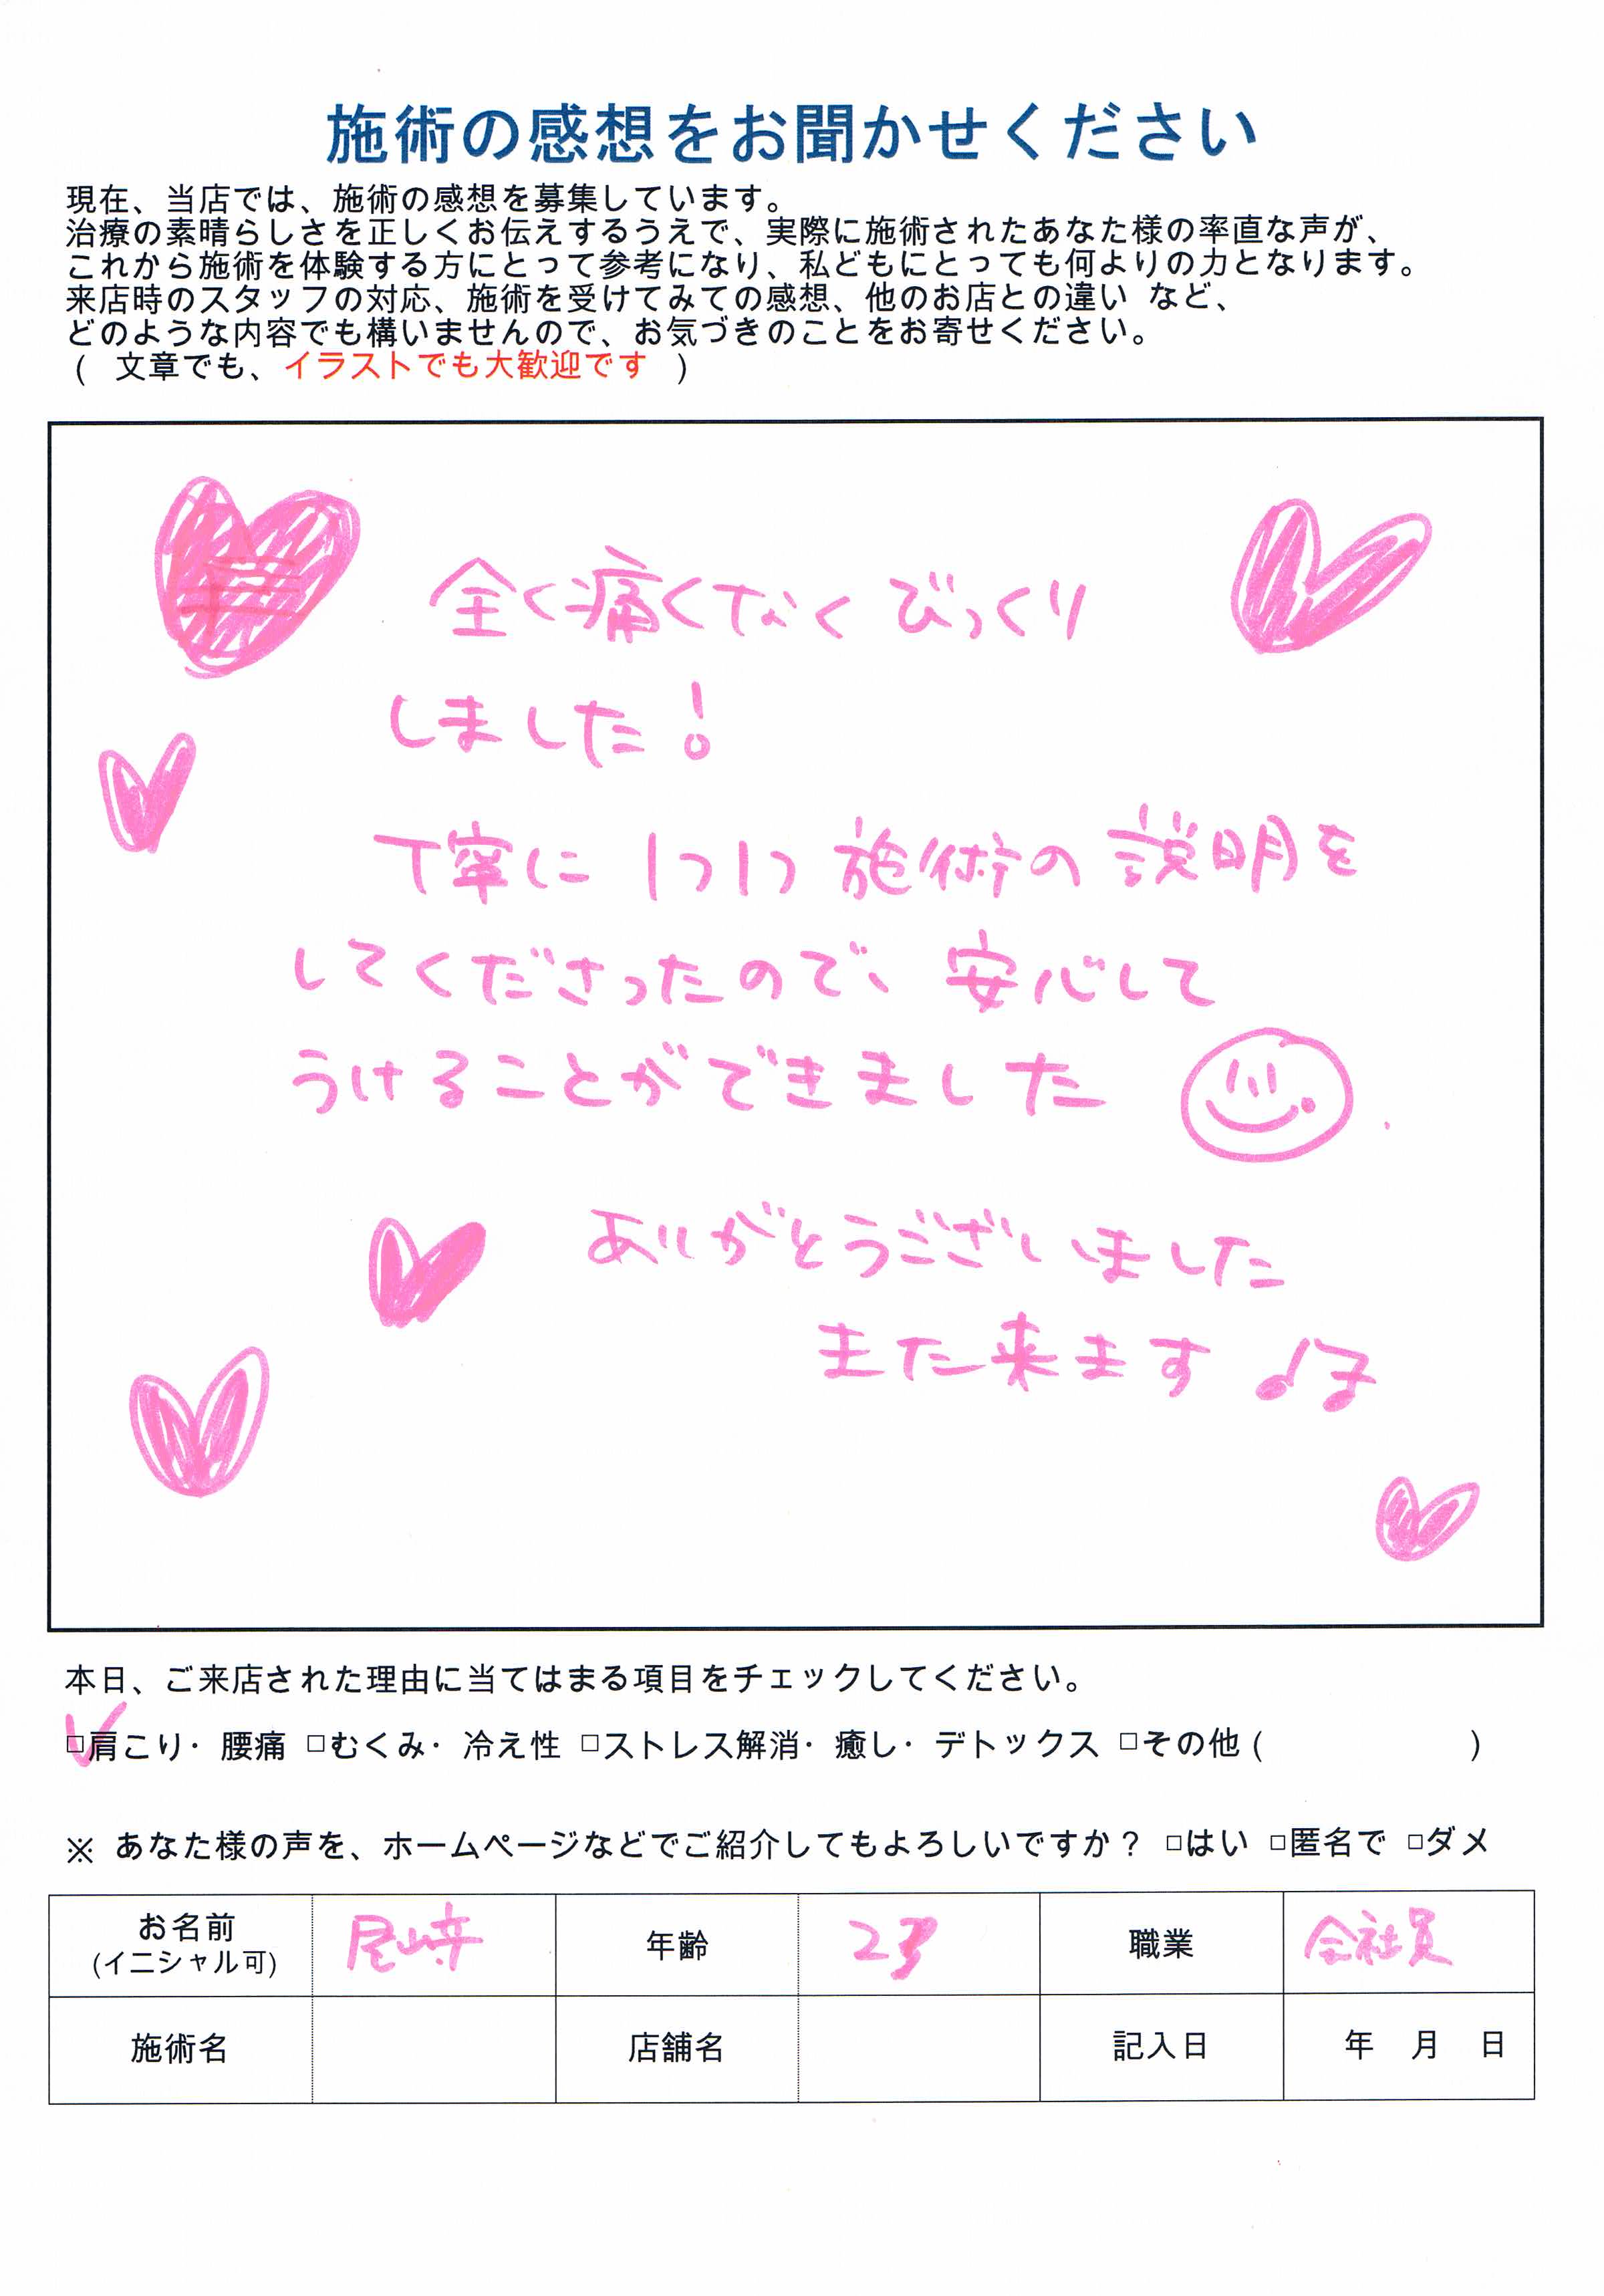 施術の感想をお聞かせください
現在、当店では、施術の感想を募集しています。
治療の素晴らしさを正しくお伝えするうえで、実際に施術されたあなた様の率直な声が、
これから施術を体験する方にとって参考になり、私どもにとっても何よりの力となります。
来店時のスタッフの対応、施術を受けてみての感想、他のお店との違い など、
どのような内容でも構いませんので、お気づきのことをお寄せください。
( 文章でも、イラストでも大歓迎です )
全く痛くなくびっくり
しました!
丁寧に1つ1つ施術の説明を
してくださったので、安心して
うけることができました
ありがとうございました
また来ます♪♪
本日、ご来店された理由に当てはまる項目をチェックしてください。
☑肩こり・腰痛 □むくみ・冷え性 □ストレス解消・癒し・デトックス □その他 ( )
※ あなた様の声を、ホームページなどでご紹介してもよろしいですか? □はい □匿名で □ダメ
お名前 尾崎 年齢 23 職業 会社員
(イニシャル可)
施術名 店舗名 記入日 年 月 日